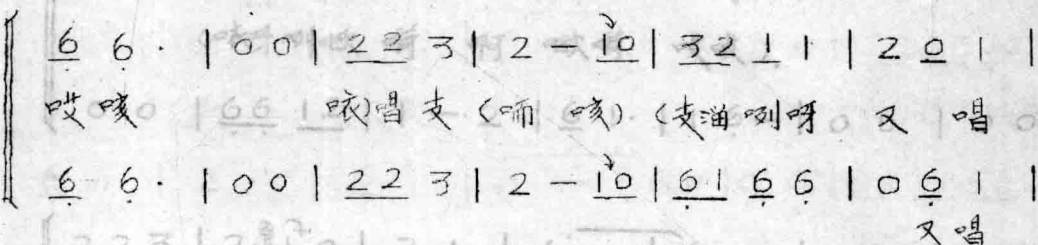 6 6· | 0 0 | 2 2 3 | 2 — 1 0 | 3 2 1 1 | 2 0 1 |
哎咳 咳)唱支(嗬咳)(支淄咧呀 又 唱
6 6· | 0 0 | 2 2 3 | 2 — 1 0 | 6 1 6 6 | 0 6 1 |
又唱